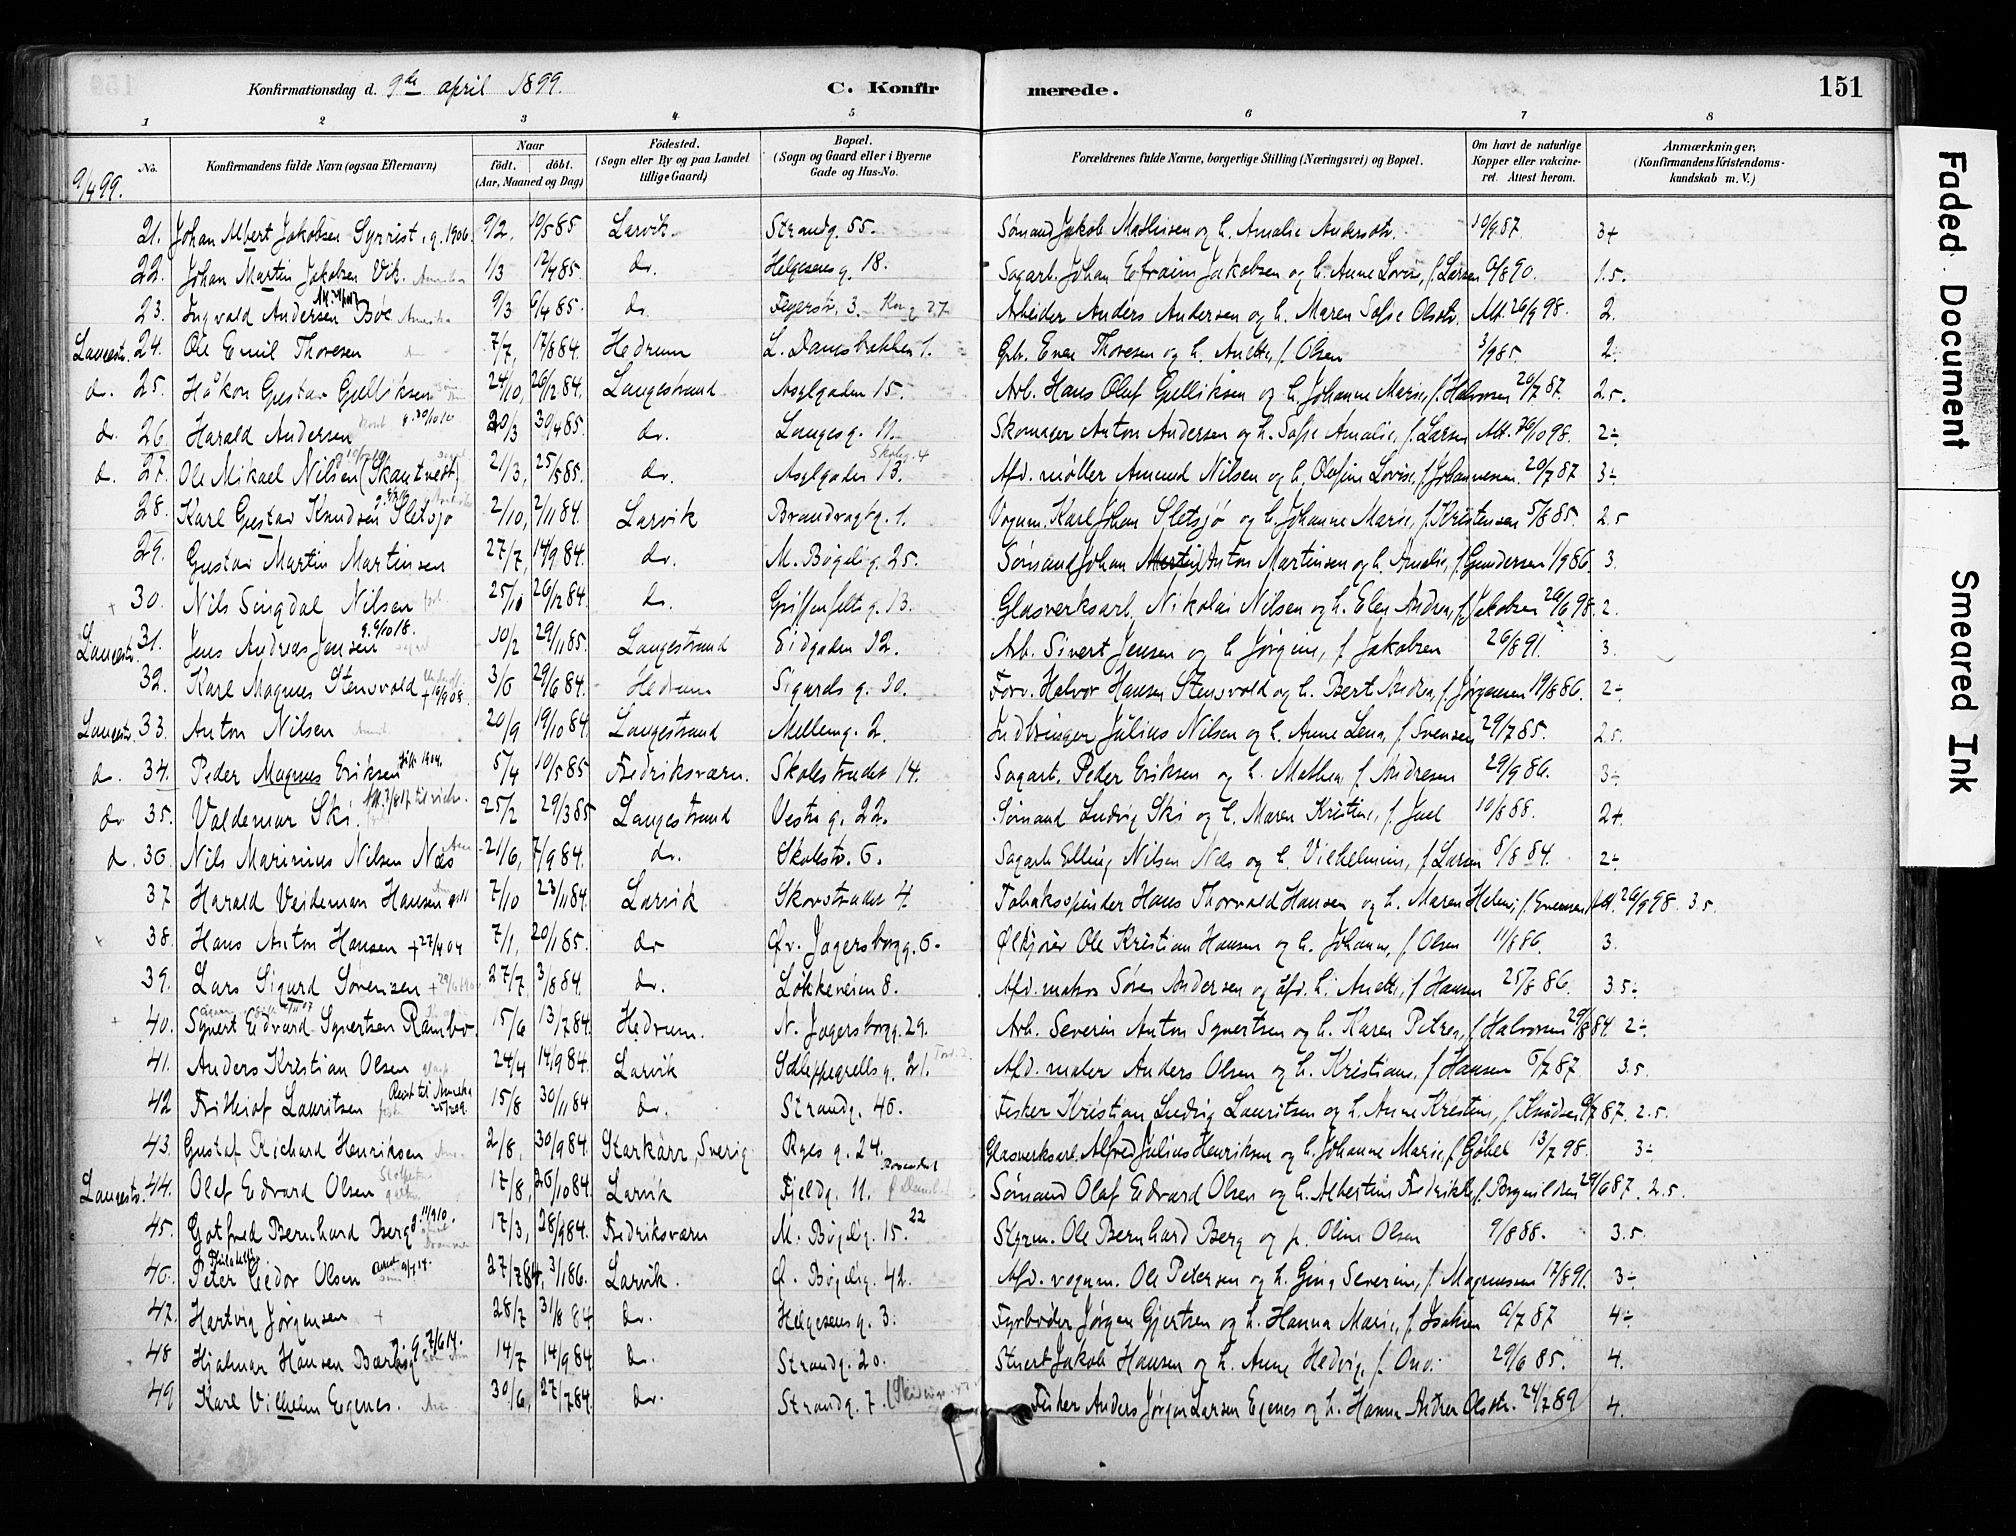 Konfirmationsdag d. 9de april 1899. C. Konfirmerede. 151
1 2 3 4 5 6 7 8
No. Konfirmandens fulde Navn (ogsaa Efternavn) Naar født. døbt. (Aar, Maaned og Dag) Fødested. (Sogn eller By og paa Landet tillige Gaard) Bopæl. (Sogn og Gaard eller i Byerne Gade og Hus-No. Forældrenes fulde Navne, borgerlige Stilling (Næringsvei) og Bopæl. Om havt de naturlige Kopper eller vakcineret. Attest herom. Anmærkninger, (Konfirmandens Kristendomskundskab m. V.)
9/4 99.
21. Johan Albert Jakobsen Syrrist, g. 1906. 9/2, 10/5 85 Larvik. Strandg. 55. Sømand Jakob Mathisen og h. Amalie Andersdtr. 10/9 87. 3+
22. Johan Martin Jakobsen Vik. 1/3 12/4 85 do. Helgesens g. 18. Sagarb. Johan Efraim Jakobsen og h. Anne Lovise, f. Larsen 6/8 90. 1.5.
23. Ingvald Andersen Bøe 9/3 6/4 85 do. Feyerstr. 3. Arbeider Anders Andersen og h. Maren Sofie Olsdtr. Att. 26/9 98. 2.
Langestr. 24. Ole Emil Thoresen 7/7, 17/8 84. Hedrum L. Damsbakken 1. Grb. Even Thoresen og h. Anette, f. Olsen 3/9 85. 2-
do. 25. Håkon Gustav Gulliksen 24/10, 26/12 84, Langestrand Aslgaden 15. Arb. Hans Oluf Gulliksen og h. Johanne Marie, f. Halvorsen 20/7 87. 2.5.
do. 26. Harald Andersen g. 30/10 10 20/3 30/4 85. do. Langes g. 11. Skomager Anton Andersen og h. Sofie Amalie, f. Larsen Att. 26/10 98. 2-
d. 27. Ole Mikael Nilsen (Skantvedt) 21/3, 25/5 85. do. Aslgaden 13. Skoleg. 4 Afd. møller Amund Nilsen og h. Olefine Lovise, f. Johannesen 20/7 87 3-
28. Karl Gustav Knudsen Sletsjø 2/10, 2/11 84. Larvik Brandvagtg. 1. Vognm. Karl Johan Sletsjø og h. Johanne Marie, f. Kristensen 5/8 85. 2.5
29. Gustav Martin Martinsen 27/7, 14/9 84. do. M. Bøgelig. 25. Sømand Johan Anton Martinsen og h. Amalie, f. Gundersen 1/9 86. 3.
+ 30. Nils Singdal Nilsen 25/10 26/12 84. do. Griffenfelts g. 13. Glasverksarb. Nikolai Nilsen og h. Elen Andrea, f. Jakobsen 26/6 98. 2.
Langestr. 31. Jens Andreas Jensen g. 6/10 18. 10/2 29/11 85. Langestrand Eidgaden 12. Arb. Sivert Jensen og h. Jørgine, f. Jakobsen 26/8 91. 3.
32. Karl Magnus Stensvold + 16/9 08. 3/6 29/6 84. Hedrum Sigurds g. 20. Forv. Halvor Hansen Stensvold og h. Bert Andrea, f. Jørgensen 19/8 86. 2-
Langestr. 33. Anton Nilsen 20/9 19/10 84. Langestrand Mellemg. 2. Indbringer Julius Nilsen og h. Anne Lena, f. Svensen 29/7 85. 2.5.
d. 34. Peder Magnus Eriksen 1904. 5/4 10/5 85 Fredriksværn. Skolestrædet 14. Sagarb. Peder Eriksen og h. Mathea, f. Andresen 29/9 86. 3-
do 35. Valdemar Ski. 25/2 29/3 85 Langestrand Vestre g. 22. Sømand Ludvig Ski og h. Maren Kristine, f. Juel 10/8 88. 2+.
d. 36. Nils Marinius Nilsen Næs 21/6, 7/9 84. do. Skolestr. 6. Sagarb. Elling Nilsen Næs og h. Vilhelmine, f. Larsen 8/8 84. 2-
37 Harald Veideman Hansen 7/10 23/11 84. Larvik Skovstrædet 4. Tobaksspinder Hans Thorvald Hansen og h. Maren Helene, f. Evensen, Att. 26/9 98. 3.5.
+ 38. Hans Anton Hansen + 27/4 04 7/1, 20/1 85. do Øv. Jagersborgg. 6. Ølkjører Ole Kristian Hansen og h. Johanne, f. Olsen 11/8 86. 3.
39. Lars Sigurd Sørensen 27/7, 3/8 84. do. Løkkeveien 8. Afd. matros Søren Andersen og afd. h. Anette, f. Hansen 25/8 86. 3.5-
+ 40. Syvert Edvard Syvertsen Rambo. 15/6 13/7 84. Hedrum. N. Jagersborgg. 29. Arb. Severin Anton Syvertsen og h. Karen Petrea, f. Halvorsen 29/8 84 2-
41. Anders Kristian Olsen 24/4 14/9 84. Larvik Schleppegrells g. 21. Afd. maler Anders Olsen og h. Kristiane, f. Hansen 6/7 87. 3.5.
42 Frithiof Lauritsen Reist til Amerika 25/2 09. 15/8 30/11 84 do. Strandg. 46. Fisker Kristian Ludvig Lauritsen og h. Anne Kristine, f. Knudsen 6/7 87. 2.5.
43. Gustaf Richard Henriksen 2/8, 30/9 84. Starkärr, Sverig Ryes g. 24. Glasverksarb. Alfred Julius Henriksen og h. Johanne Marie, f. Göbel 13/7 98. 3-
Langestr. 44. Olaf Edvard Olsen 17/8, 26/10 84. Larvik Fjeldg. 11. Sømand Olaf Edvard Olsen og h. Albertine Fredrikke, f. Brynildsen 29/6 87. 2.5.
45. Gotfred Bernhard Berg g. 11/9 10. 17/3, 28/9 84. Fredriksværn M. Bøgelig. 15. 22 Styrm. Ole Bernhard Berg og p. Oline Olsen 9/8 88. 3.5.
46. Peter Cedor Olsen 27/7 84, 3/1 86. Larvik. Ø. Bøgelig. 42. Afd. vognm. Ole Petersen og h. Gina Severine, f. Magnussen 17/8 91. 3-
47. Hartvig Jørgensen + 28/7 31/8 84 do. Helgesens g. 3. Fyrbøder Jørgen Gjertsen og h. Hanna Marie, f. Isaksen 6/7 87 4-
48 Hjalmar Hansen Bærbog g. 7/6 14. 14/7 14/9 84 do. Strandg. 20. Stuert Jakob Hansen og h. Anne Hedvig, f. Ono. 29/6 85. 4.
49 Karl Vilhelm Egenes. 30/6, 27/7 84. do. Strandg. 7. Fisker Anders Jørgen Larsen Egenes og h. Hanna Andrea Olsdtr. 24/7 89 4.
Faded Document
Smeared Ink